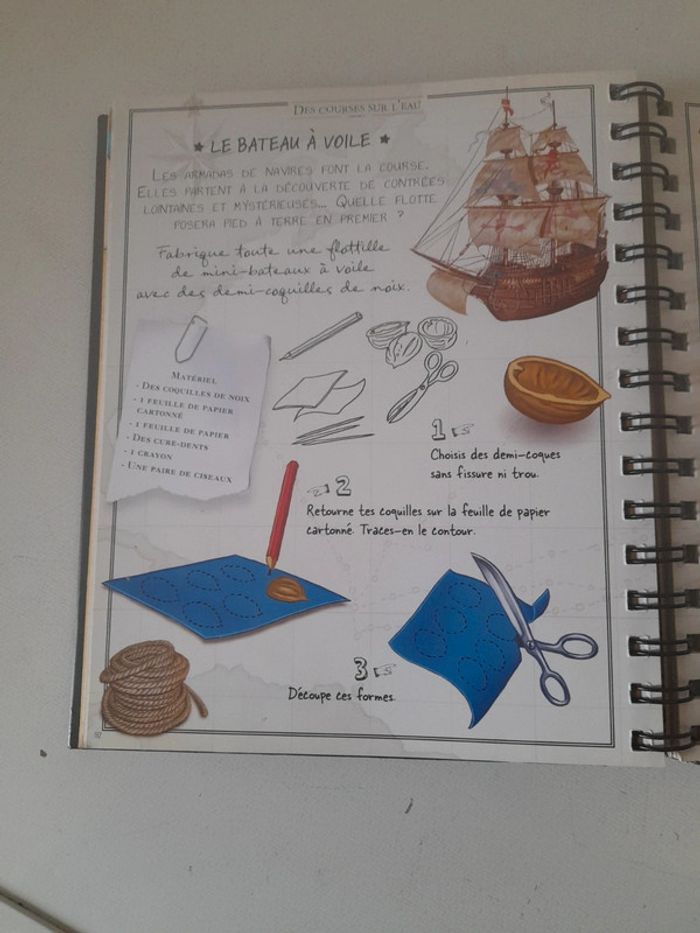 DES COURSES SUR L'EAU
LE BATEAU À VOILE
LES ARMADAS DE NAVIRES FONT LA COURSE.
ELLES PARTENT À LA DÉCOUVERTE DE CONTRÉES
LOINTAINES ET MYSTÉRIEUSES... QUELLE FLOTTE
POSERA PIED À TERRE EN PREMIER ?
Fabrique toute une flottille
de mini-bateaux à voile
avec des demi-coquilles de noix.
MATÉRIEL
- DES COQUILLES DE NOIX
- 1 FEUILLE DE PAPIER
CARTONNÉ
- 1 FEUILLE DE PAPIER
- DES CURE-DENTS
- 1 CRAYON
- UNE PAIRE DE CISEAUX
1
Choisis des demi-coques
sans fissure ni trou.
2
Retourne tes coquilles sur la feuille de papier
cartonné. Traces-en le contour.
3
Découpe ces formes.